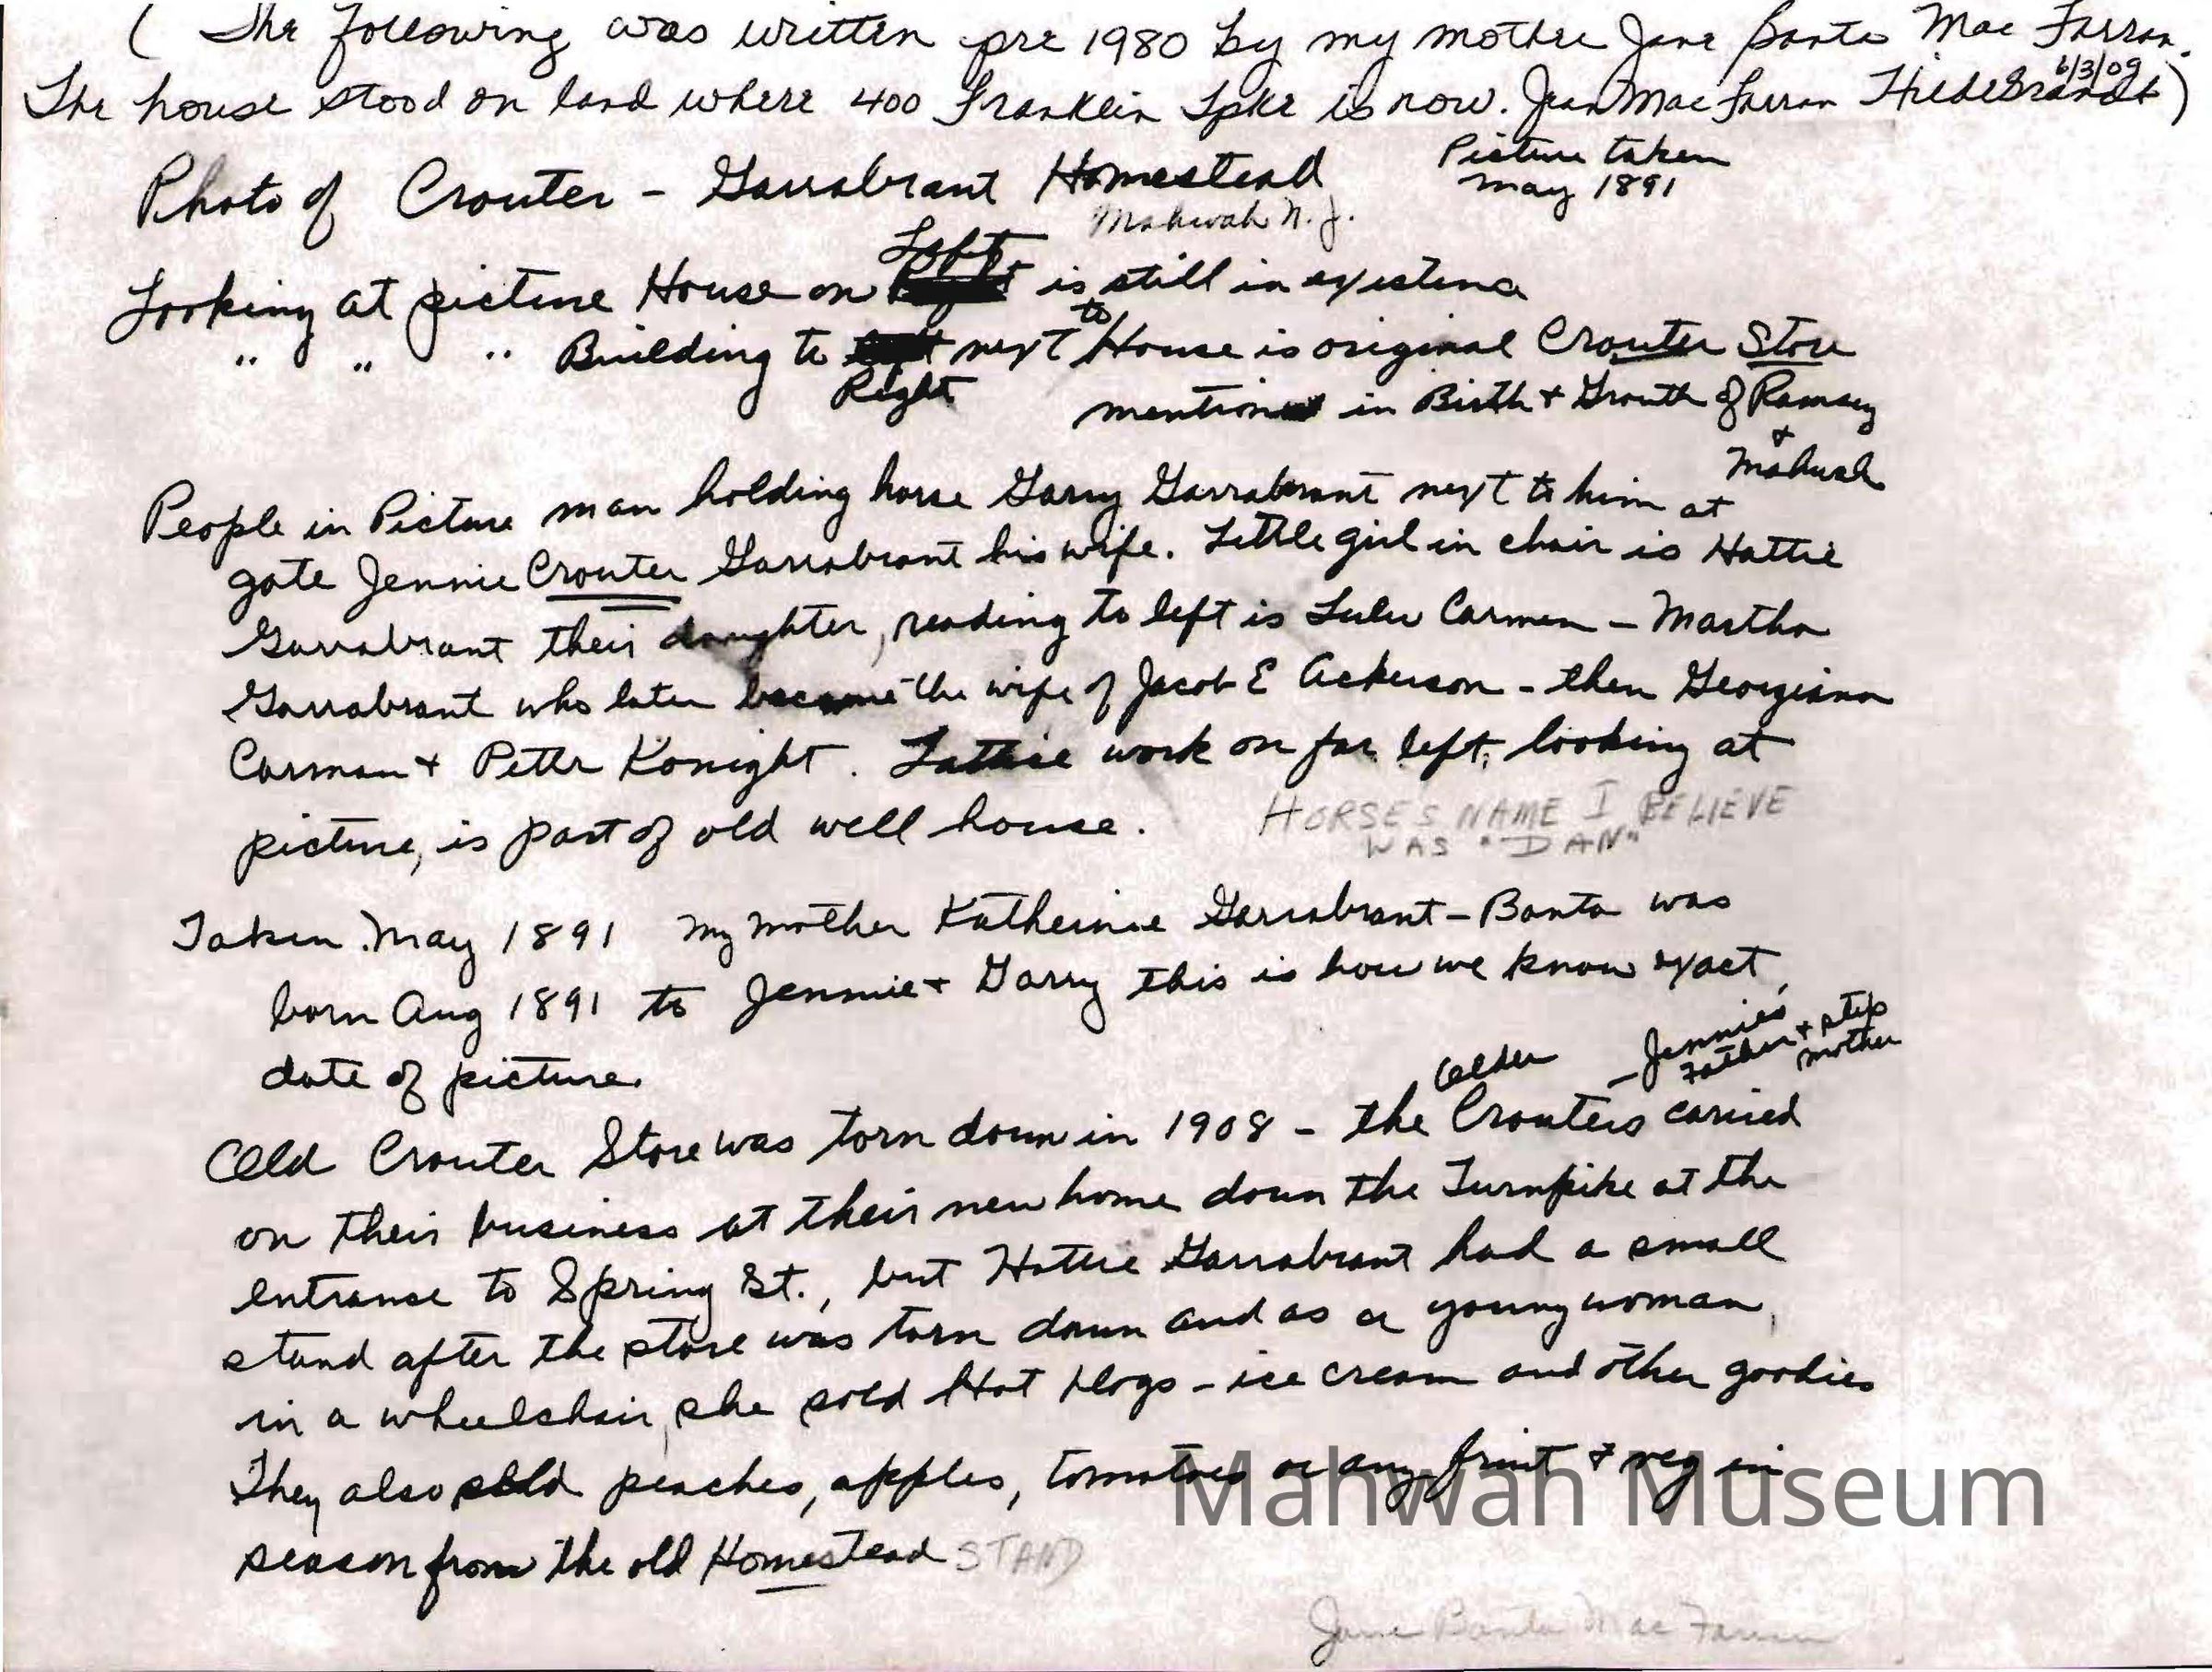 ( The following was written pre 1980 by my mother Jane Banta Mac Farran.
The house stood on land where 400 Franklin Tpke is now. Jean Mac Farran Hildebrandt)
6/3/09
Photo of Crouter - Garrabrant Homestead
Mahwah N.J.
Picture taken
May 1891
Looking at picture House on Left is still in existence
" " " Building to Right next to House is original Crouter Store
mentioned in Birth + Growth of Ramsey
+
Mahwah
People in Picture man holding horse Garry Garrabrant next to him at
gate Jennie Crouter Garrabrant his wife. Little girl in chair is Hattie
Garrabrant their daughter, reading to left is Lulu Carmen - Martha
Garrabrant who later became the wife of Jacob E Ackerson - then Georgiana
Carman + Peter Konight. Lattice work on far left, looking at
picture, is part of old well house.
HORSES NAME I BELIEVE
WAS "DAN"
Taken May 1891 my mother Katherine Garrabrant - Banta was
born Aug 1891 to Jennie + Garry this is how we know exact
date of picture.
older - Jennie's
Father + step
mother
Old Crouter Store was torn down in 1908 - the Crouters carried
on their business at their new home down the Turnpike at the
entranse to Spring St., but Hattie Garrabrant had a small
stand after the store was torn down and as a young woman,
in a wheelchair, she sold Hot Dogs - ice cream and other goodies
They also sold peaches, apples, tomatoes or any fruit + veg in
season from the old Homestead STAND
Jane Banta Mac Farran
Mahwah Museum